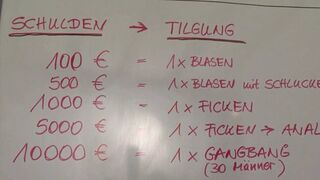 SCHULDEN → TILGUNG
100 € = 1 x BLASEN
500 € = 1 x BLASEN mit SCHLUCKE
1000 € = 1 x FICKEN
5000 € = 1 x FICKEN → ANAL
10000 € = 1 x GANGBANG
(30 MÄNNER)